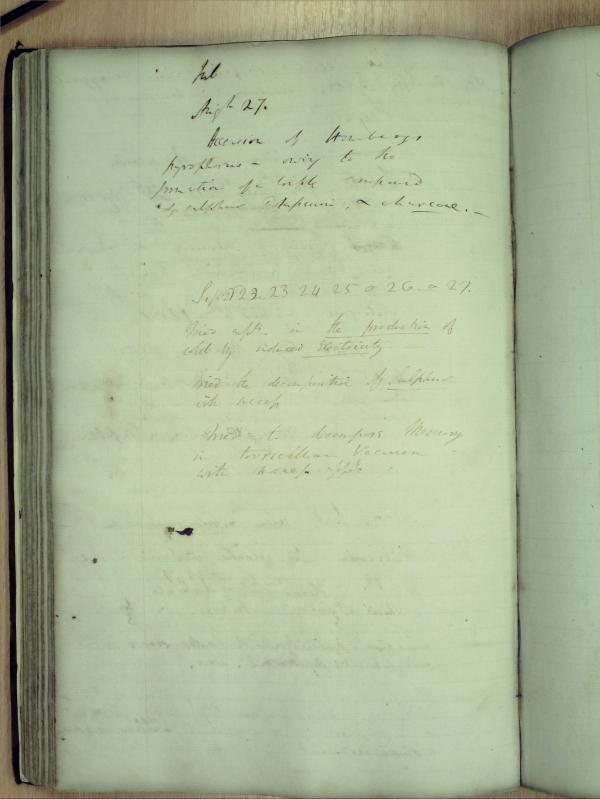 Jul
Augst 27.
Accension of Hombergs
pyrophorus - owing to the
formation of a triple compound
of sulphur Potassium, & charcoal. -
Sept 22 23 24 25 & 26 & 27.
Tried expts. in the production of
cold by induced Electricity
Tried the decomposition of Sulphur
with
to decompose Mercury
in torricellian Vacuum
with